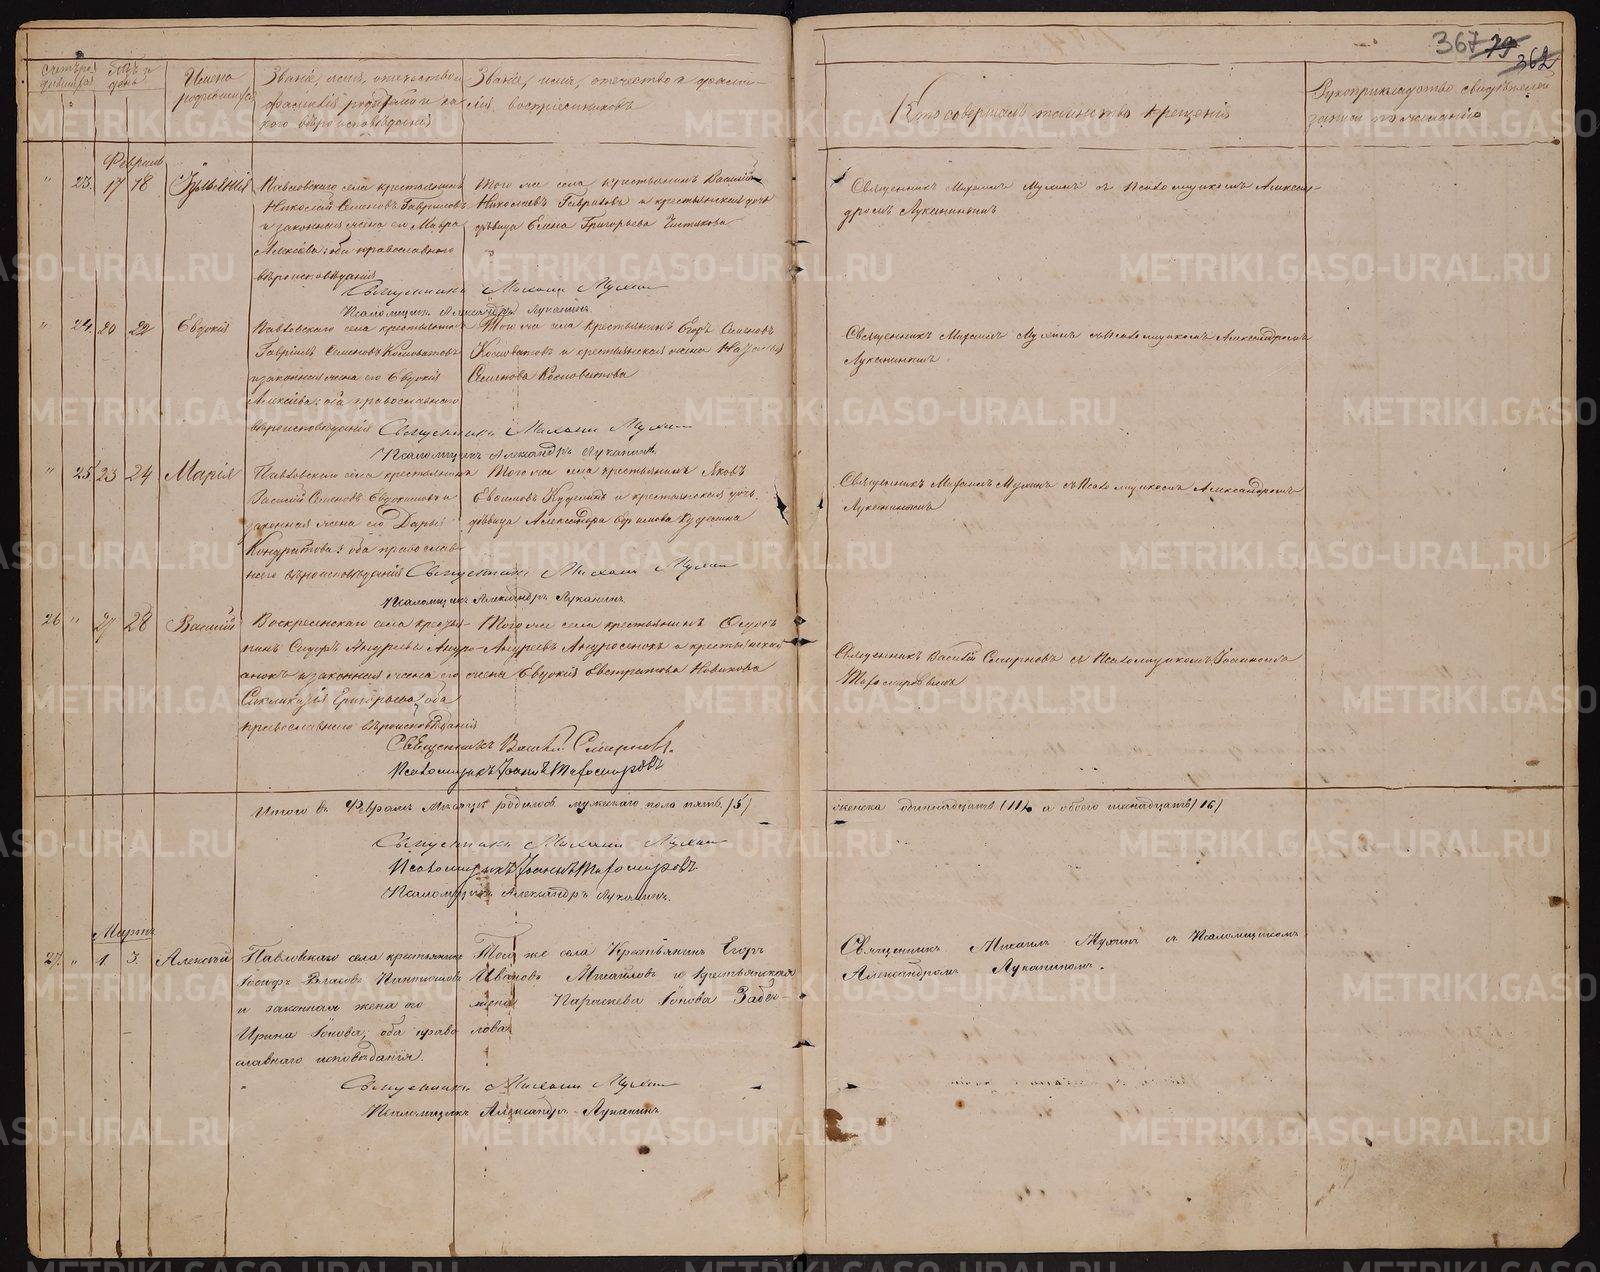 367 79 362
Счетъ ро-
дившихся
Имена
родившихся
Званіе, имя, отечество и
фамилія родителей и ка-
кого вѣроисповѣданія
Званіе, имя, отечество и фами-
лія воспріемниковъ
Кто совершалъ таинство крещенія
Рукоприкладство свидѣтелей
записи по желанію
Февраль
" 23. 17 18
Павловскаго села крестьянинъ
Николай Семеновъ Гавриловъ
и законная жена его Мавра
Алексѣева; оба православнаго
вѣроисповѣданія
Того же села крестьянинъ Василій
Николаевъ Гавриловъ и крестьянская дочь
дѣвица Елена Григорьева Чистякова
Священникъ Михаилъ Мухинъ съ Псаломщикомъ Алексан-
дромъ Луканинымъ
Священникъ Михаилъ Мухинъ
Псаломщикъ Александръ Луканинъ.
" 24. 20 22 Евдокія
Павловскаго села крестьянинъ
Гавріилъ Семеновъ
и законная жена его Евдокія
Алексѣева; оба православнаго
вѣроисповѣданія
Того же села крестьянинъ Егоръ Семеновъ
и крестьянская жена
Семенова
Священникъ Михаилъ Мухинъ съ Псаломщикомъ Александромъ
Луканинымъ
Священникъ Михаилъ Мухинъ
Псаломщикъ Александръ Луканинъ.
" 25. 23 24 Марія
Павловскаго села крестьянинъ
Василій Семеновъ Евдокимовъ и
законная жена его Дарья
Кондратова; оба православ-
наго вѣроисповѣданія
Того же села крестьянинъ Яковъ
и крестьянская дочь
дѣвица Александра
Священникъ Михаилъ Мухинъ съ Псаломщикомъ Александромъ
Луканинымъ
Священникъ Михаилъ Мухинъ
Псаломщикъ Александръ Луканинъ.
26 " 27 28 Василій
Воскресенскаго села крестья-
нинъ Сидоръ Андреевъ Андро-
и законная жена его
Григорьева, оба
православнаго вѣроисповѣданія
Того же села крестьянинъ
Андреевъ и крестьянская
жена Евдокія Евстратова Новикова
Священникъ Василій Смирновъ съ Псаломщикомъ Іоанномъ
Священникъ Василій Смирновъ.
Псаломщикъ Іоаннъ
Итого въ Февралѣ Мѣсяцѣ родилось мужескаго пола пять (5)
женска одиннадцать (11), а обоего шестнадцать (16)
Священникъ Михаилъ Мухинъ
Псаломщикъ Іоаннъ
Псаломщикъ Александръ Луканинъ.
Мартъ
27. " 1 3. Алексѣй
Павловскаго села крестьянинъ
Іосифъ Власовъ
и законная жена его
Ирина Іонова; оба право
славнаго исповѣданія.
Того же села Крестьянинъ Егоръ
Ивановъ Михайловъ и Крестьянская
жена Параскева Іонова Забе-
лова.
Священникъ Михаилъ Мухинъ съ Псаломщикомъ
Александромъ Луканинымъ.
Священникъ Михаилъ Мухинъ
Псаломщикъ Александръ Луканинъ
METRIKI.GASO-URAL.RU